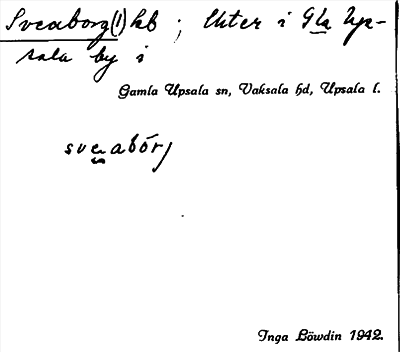 Sveaborg(1) hb ; Uster i Gla Up-
sala by i
Gamla Upsala sn, Vaksala hd, Upsala l.
sveabórj
Inga Löwdin 1942.